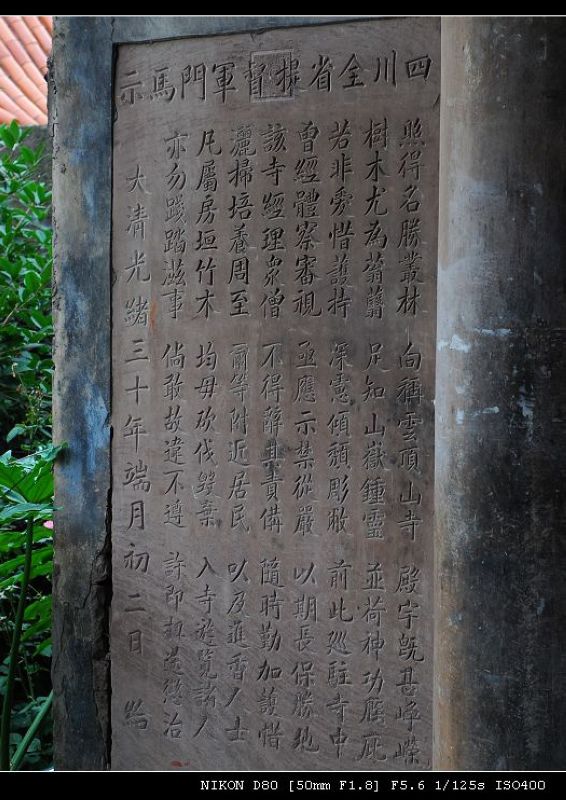 四川全省提督軍門馬示
照得名勝叢林 向稱雲頂山寺 殿宇既甚崢嶸
樹木尤為蓊欝 足知山嶽鍾靈 並荷神功廕庇
若非愛惜護持 深憲傾頹彫敝 前此巡駐寺中
曾經體察審視 亟應示禁從嚴 以期長保勝地
該寺經理衆僧 不得辭其責備 隨時勤加護惜
灑掃培養周至 爾等附近居民 以及進香人士
凡屬房垣竹木 均毋砍伐 入寺遊覽諸人
亦勿踐踏滋事 倘敢故違不遵 許即懲治
大清光緒三十年端月初二日
NIKON D80 [50mm F1.8] F5.6 1/125s ISO400